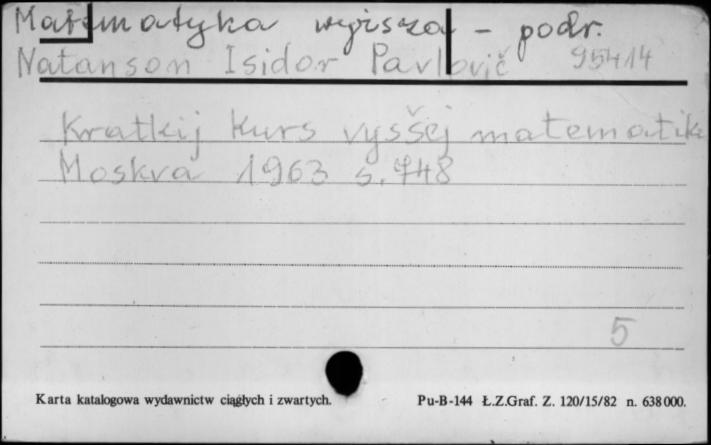 Matematyka wyższa - podr.
Natanson Isidor Pavlovič 95414
Kratkij kurs vysšej matematiki
Moskva 1963 s. 748
5
Karta katalogowa wydawnictw ciągłych i zwartych. Pu-B-144 Ł.Z.Graf. Z. 120/15/82 n. 638000.